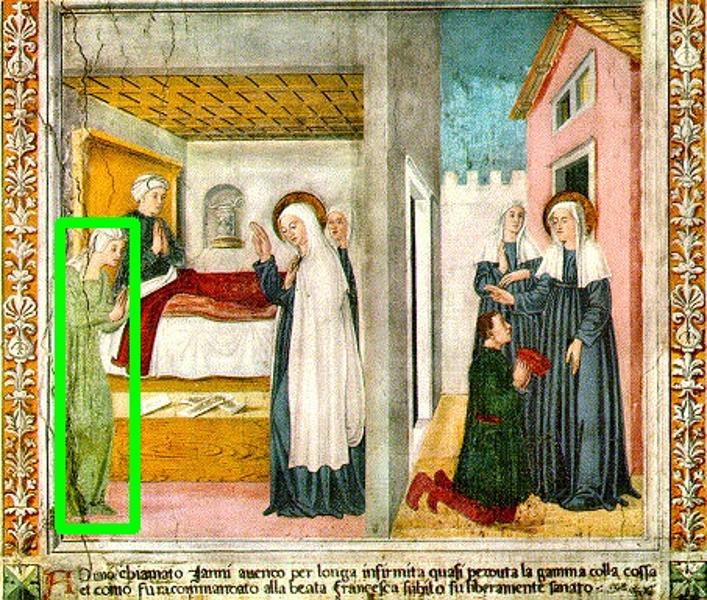 Uno chiamato Janni avendo per longa infirmita quasi perduta la gamma colla cossa
et como fu racommandato alla beata francesca subito fu liberamente sanato